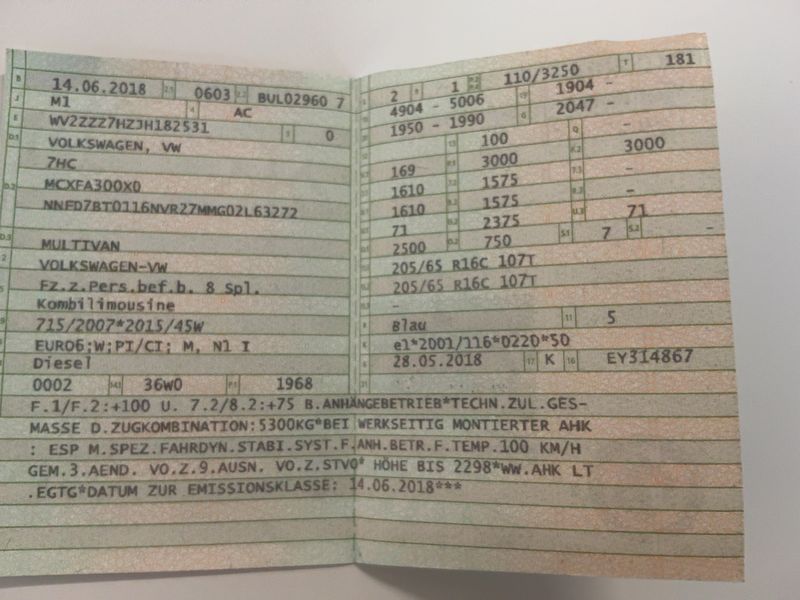 B 14.06.2018 2.1 0603 2.2 BUL02960 7
J M1 4 AC
E WV2ZZZ7HZJH182531 3 0
D.1 VOLKSWAGEN, VW
7HC
D.2 MCXFA300X0
NNFD7BT0116NVR27MMG02L63272
D.3 MULTIVAN
2 VOLKSWAGEN-VW
Fz.z.Pers.bef.b. 8 Spl.
Kombilimousine
715/2007*2015/45W
EURO6;W;PI/CI; M, N1 I
Diesel
0002 14.1 36W0 P.1 1968
L 2 9 1 P.2 P.4 110/3250 T 181
4904 - 5006 19 1904 -
1950 - 1990 G 2047 -
13 100 Q -
169 P.1 3000 F.2 3000
1610 7.2 1575 7.3 -
1610 8.2 1575 8.3 -
71 2375 U.3 71
2500 O.2 750 S.1 7 S.2 -
205/65 R16C 107T
205/65 R16C 107T
-
R Blau 11 5
K e1*2001/116*0220*50
6 28.05.2018 17 K 16 EY314867
21
F.1/F.2:+100 U. 7.2/8.2:+75 B.ANHÄNGEBETRIEB*TECHN.ZUL.GES-
MASSE D.ZUGKOMBINATION:5300KG*BEI WERKSEITIG MONTIERTER AHK
: ESP M.SPEZ.FAHRDYN.STABI.SYST.F.ANH.BETR.F.TEMP.100 KM/H
GEM.3.AEND. VO.Z.9.AUSN. VO.Z.STVO* HÖHE BIS 2298*WW.AHK LT
.EGTG*DATUM ZUR EMISSIONSKLASSE: 14.06.2018***